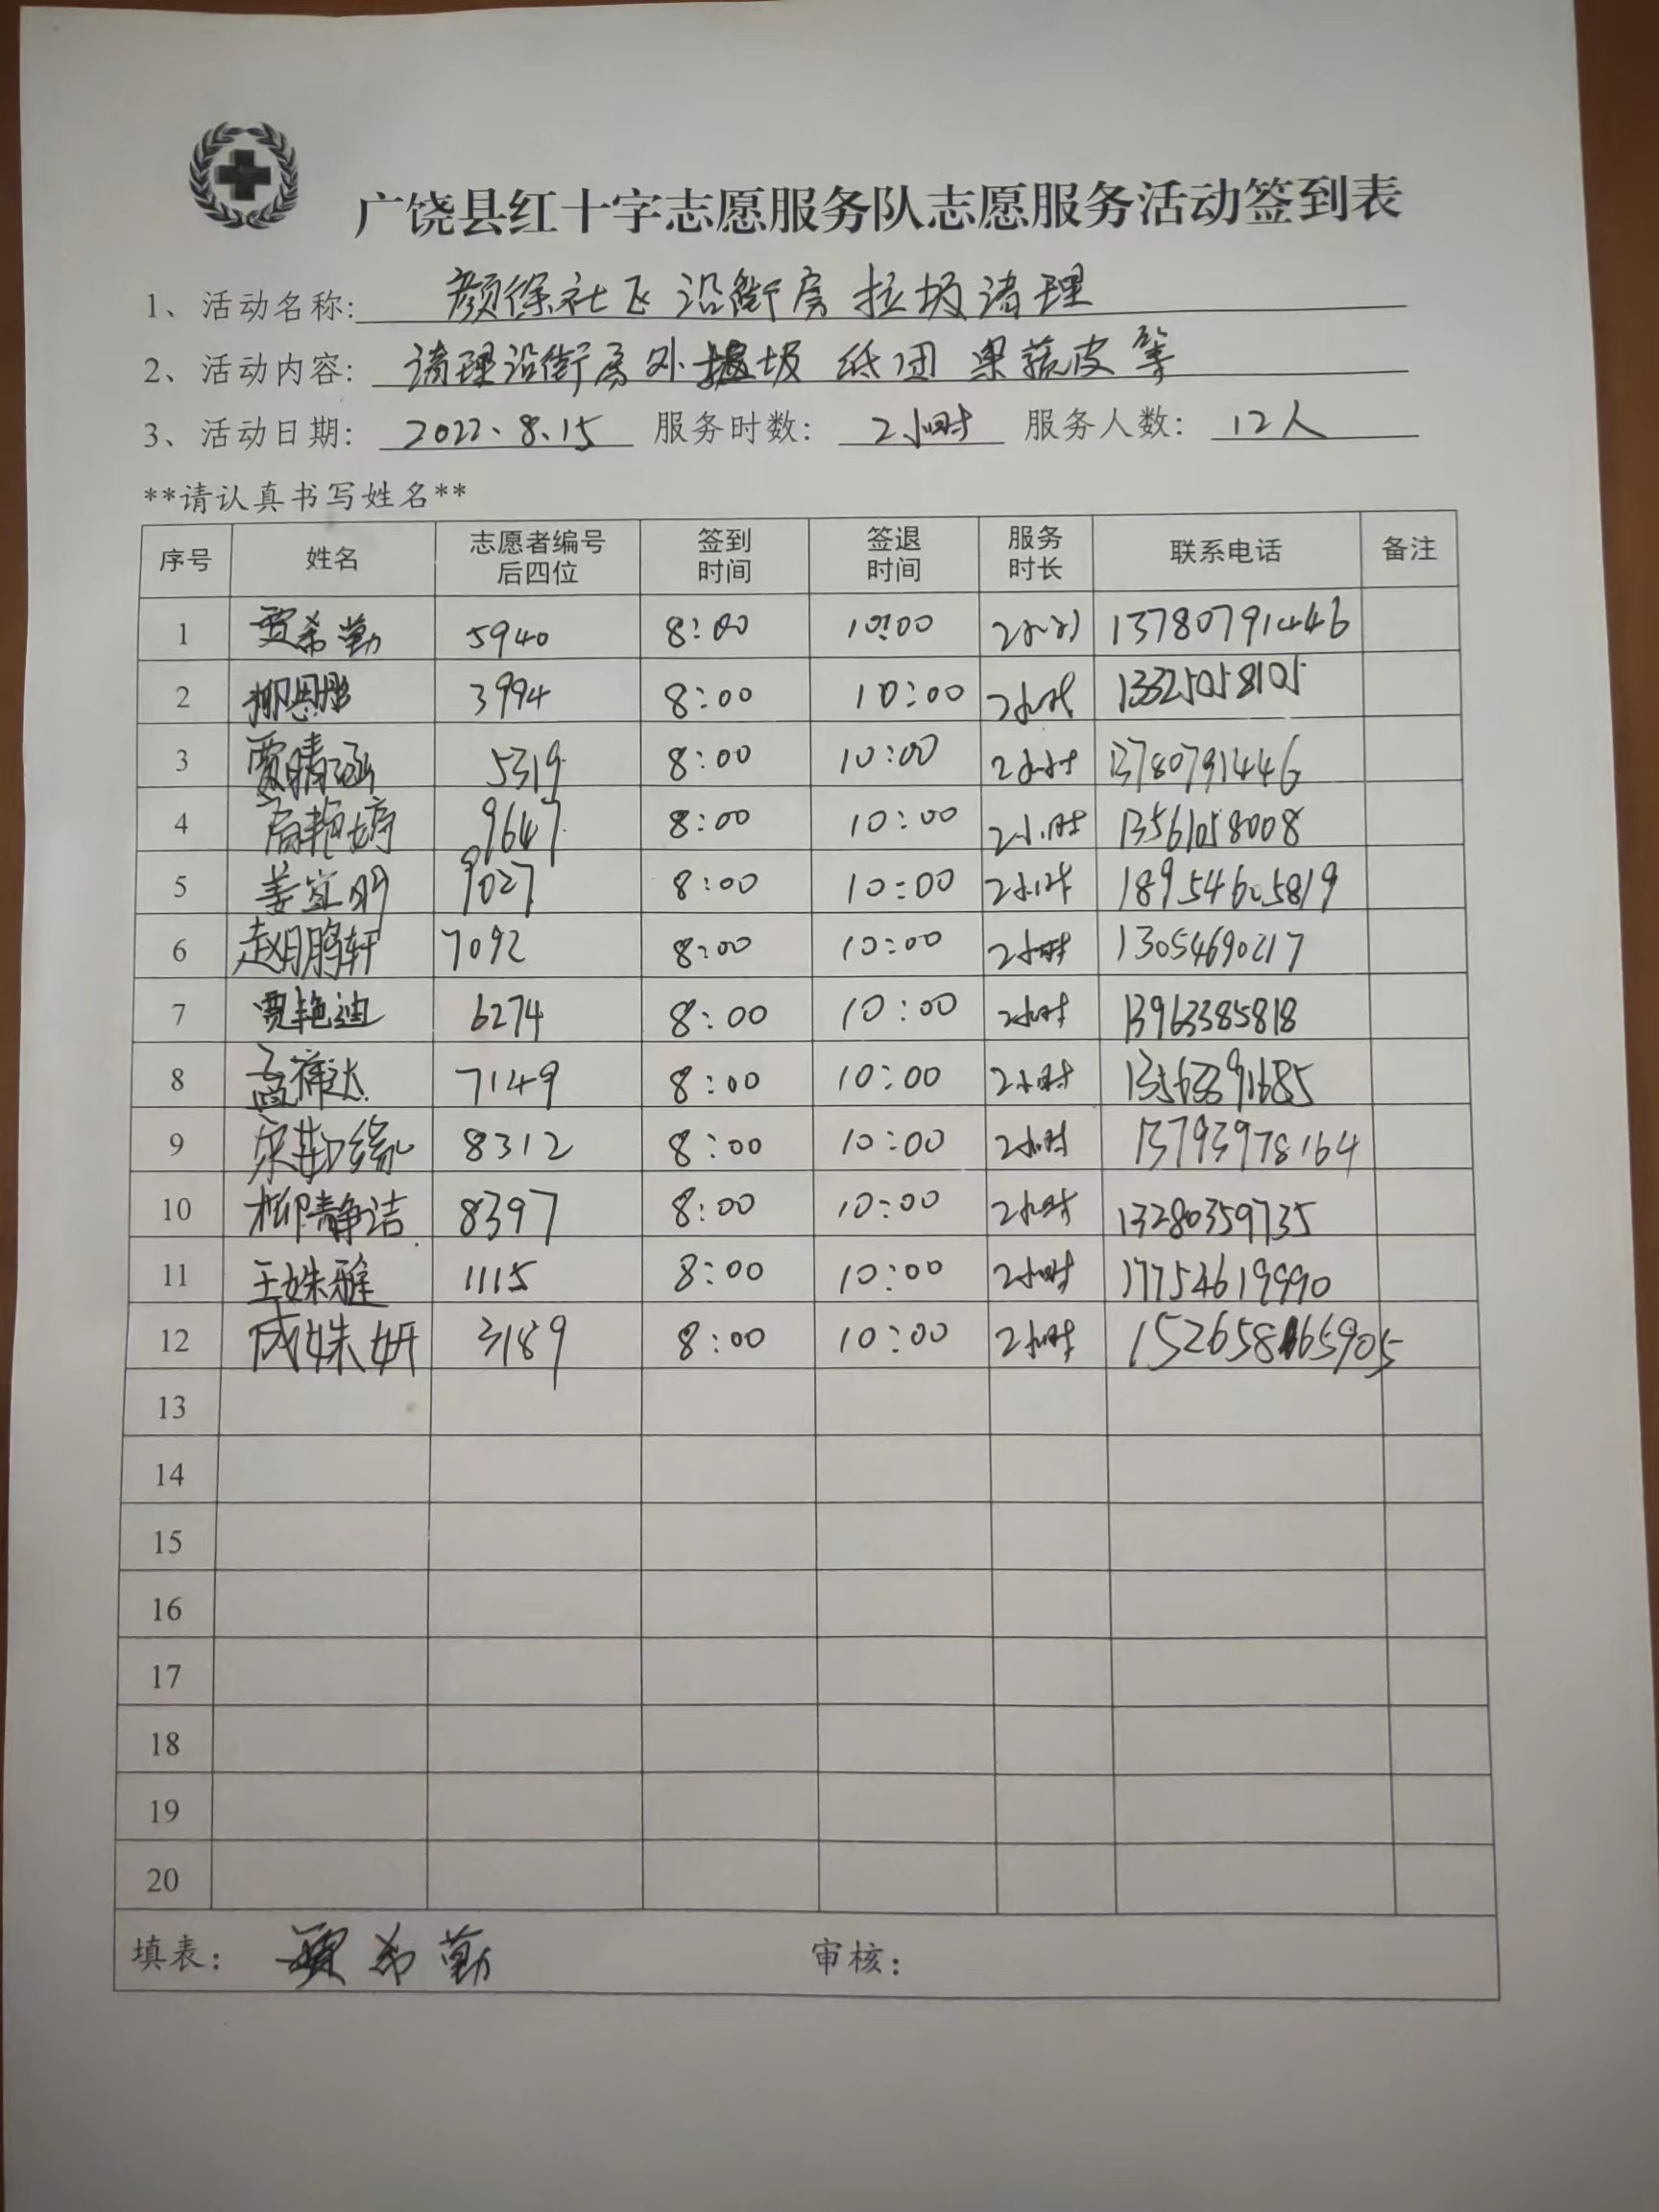 广饶县红十字志愿服务队志愿服务活动签到表
1、活动名称: 颜徐社区 沿街房 垃圾清理
2、活动内容: 清理沿街房外垃圾 纸团 果蔬皮等
3、活动日期: 2022、8、15 服务时数: 2小时 服务人数: 12人
**请认真书写姓名**
序号 姓名 志愿者编号后四位 签到时间 签退时间 服务时长 联系电话 备注
1 贾希勤 5940 8:00 10:00 2小时 13780791446
2 柳思彤 3994 8:00 10:00 2小时 13325058105
3 贾晴涵 5319 8:00 10:00 2小时 13780791446
4 高艳婷 9647 8:00 10:00 2小时 13561058008
5 姜宜明 9027 8:00 10:00 2小时 18954605819
6 赵鹏轩 7092 8:00 10:00 2小时 13054690217
7 贾艳迪 6274 8:00 10:00 2小时 13963385818
8 孟祥达 7149 8:00 10:00 2小时 13563391685
9 8312 8:00 10:00 2小时 13793978164
10 柳静洁 8397 8:00 10:00 2小时 13280359735
11 王姝雅 1115 8:00 10:00 2小时 17754619990
12 成姝妍 3189 8:00 10:00 2小时
13
14
15
16
17
18
19
20
填表: 贾希勤 审核: